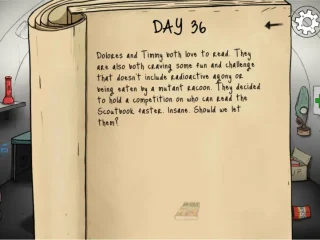 DAY 36
Dolores and Timmy both love to read. They
are also both craving some fun and challenge
that doesn't include radioactive agony or
being eaten by a mutant racoon. They decided
to hold a competition on who can read the
Scoutbook faster. Insane. Should we let
them?